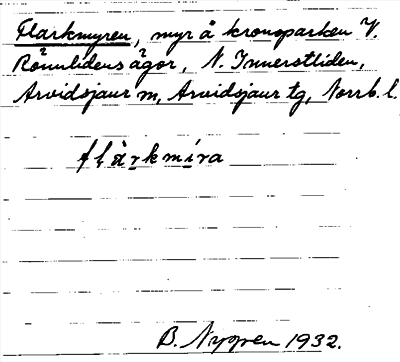 Flarkmyren, myr å kronoparken V.
Rönnlidens ägor, N. Innerstliden,
Arvidsjaur sn, Arvidsjaur tg, Norrb. l.
flarkmira
B. Nygren 1932.